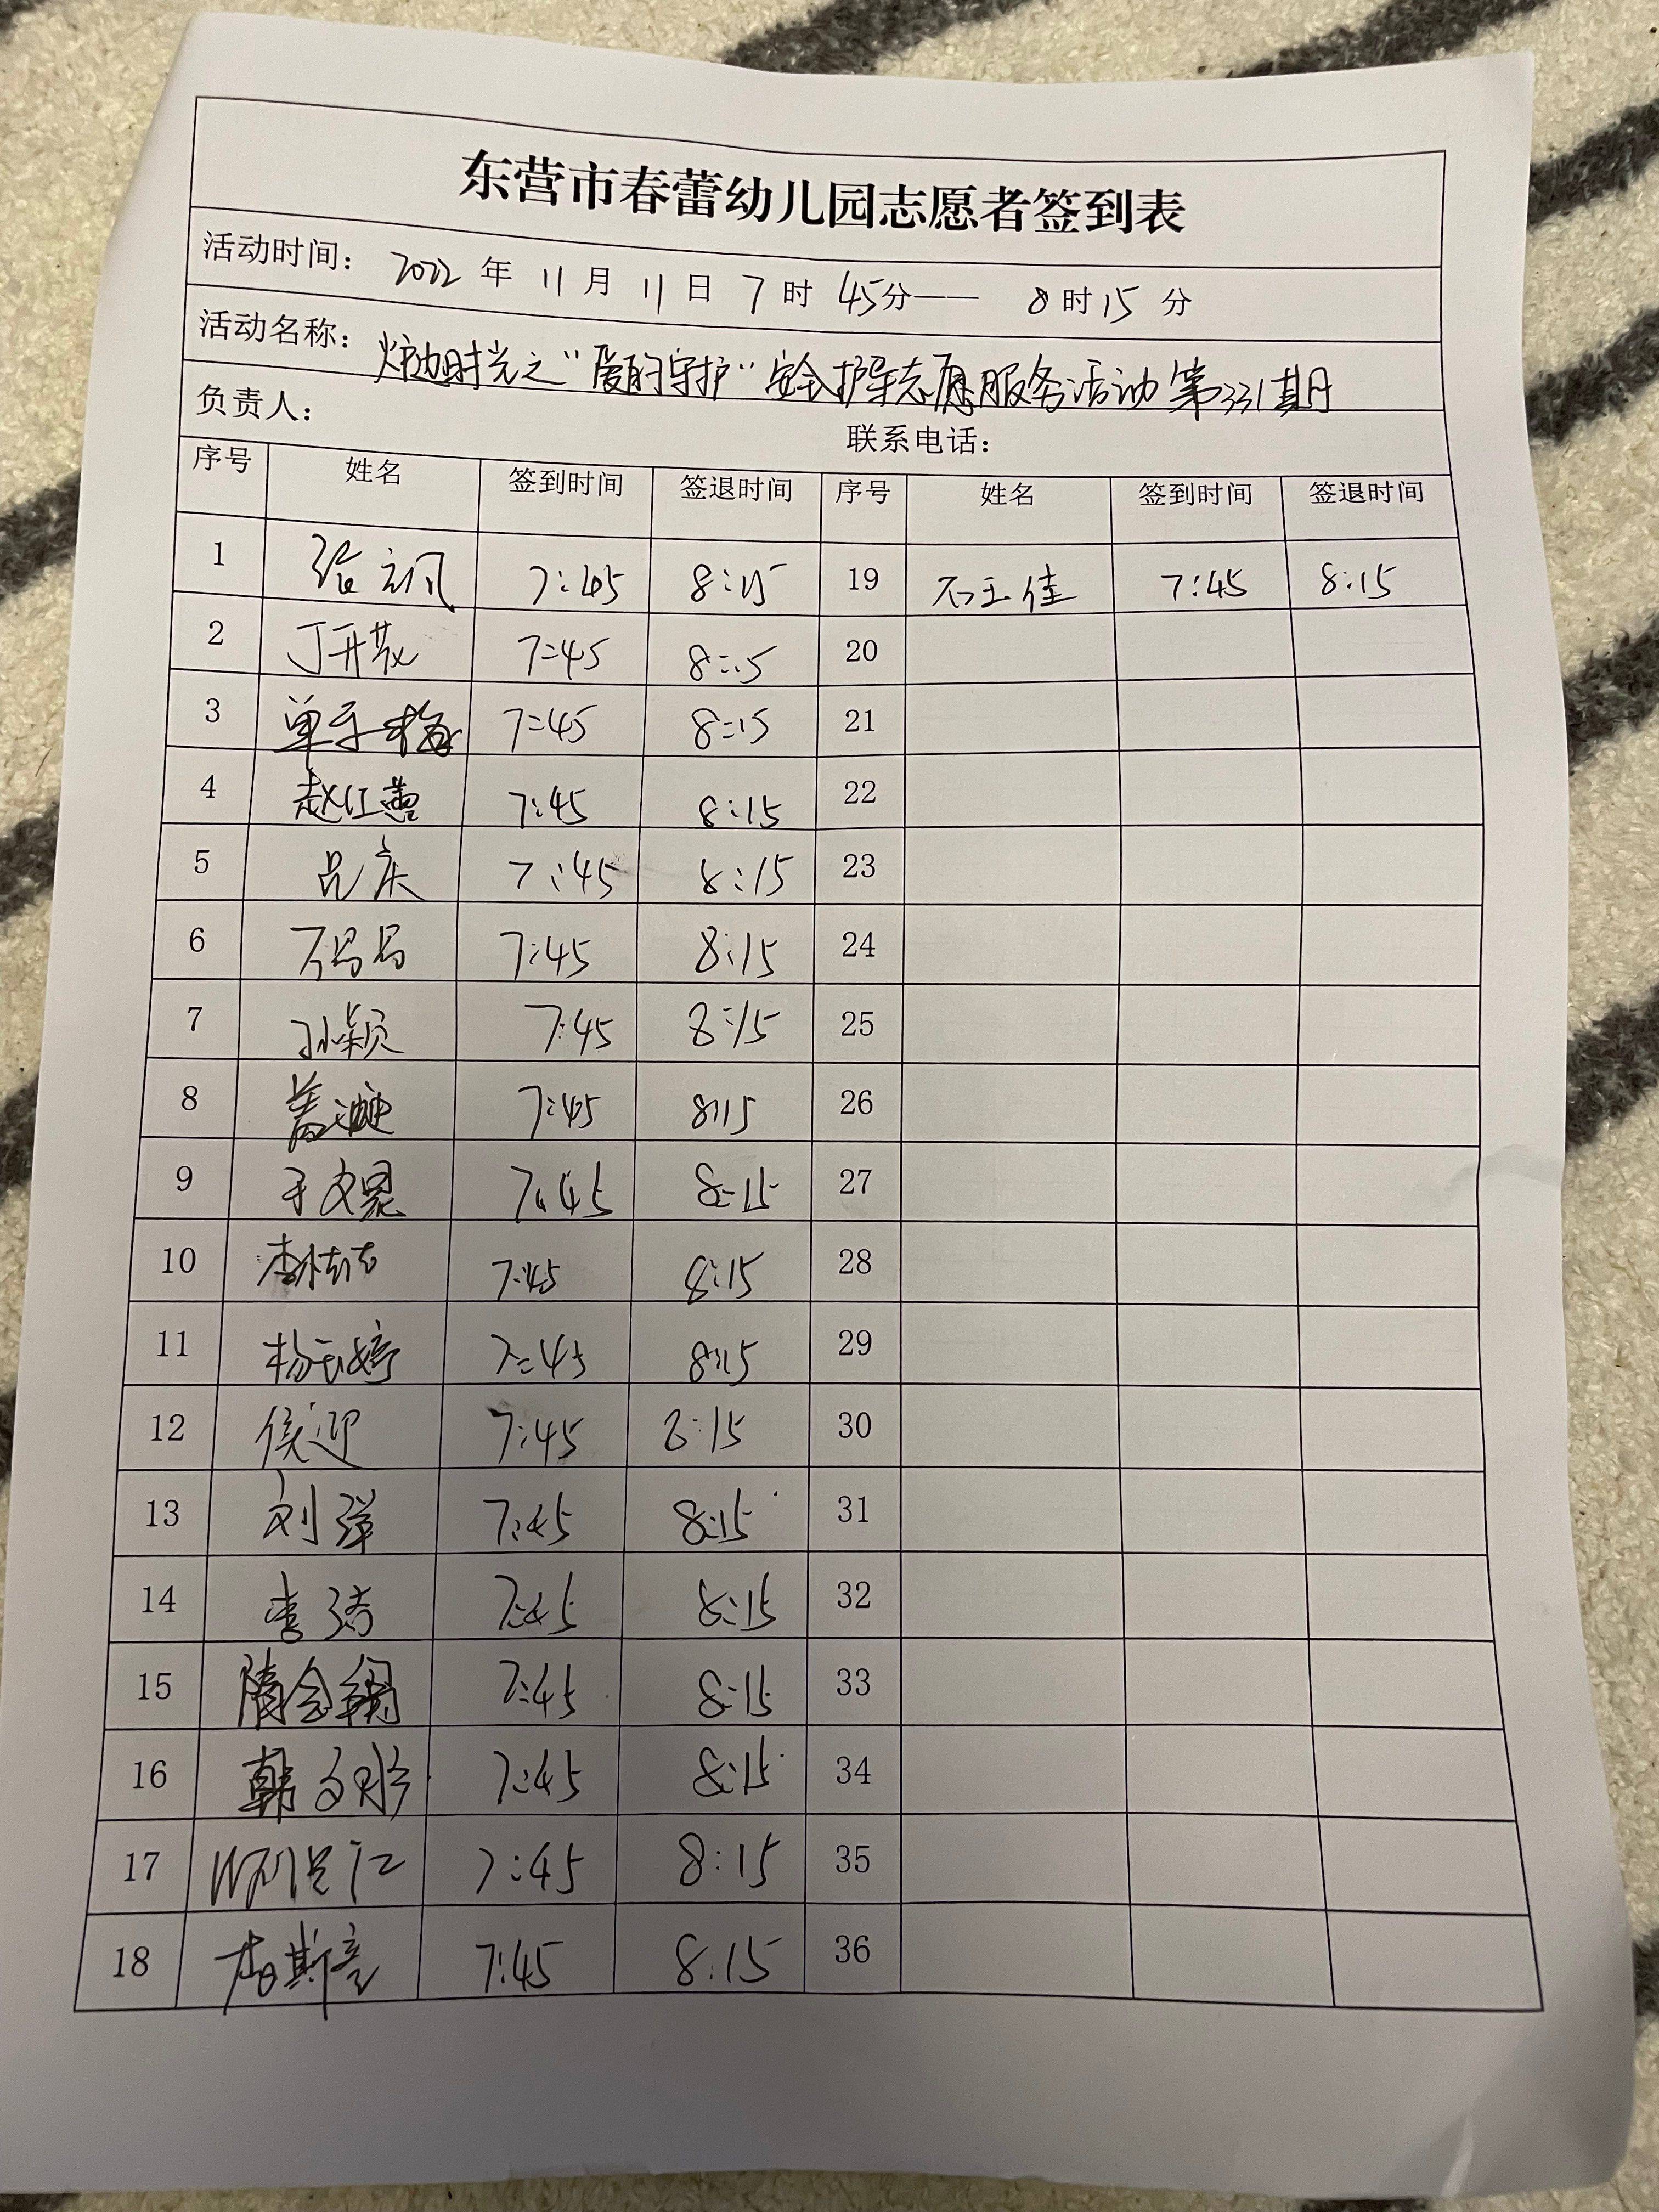 东营市春蕾幼儿园志愿者签到表
活动时间: 2022 年 11 月 11 日 7 时 45分—— 8 时 15 分
活动名称: 炉边时光之“爱的守护”安全护导志愿服务活动第331期
负责人: 联系电话:
序号 姓名 签到时间 签退时间 序号 姓名 签到时间 签退时间
1 7:45 8:15 19 石玉佳 7:45 8:15
2 7:45 8:15 20
3 7:45 8:15 21
4 赵红蕾 7:45 8:15 22
5 吕庆 7:45 8:15 23
6 7:45 8:15 24
7 孙颖 7:45 8:15 25
8 7:45 8:15 26
9 于文昆 7:45 8:15 27
10 7:45 8:15 28
11 杨玉婷 7:45 8:15 29
12 侯迎 7:45 8:15 30
13 刘 7:45 8:15 31
14 李琦 7:45 8:15 32
15 隋金 7:45 8:15 33
16 韩 7:45 8:15 34
17 7:45 8:15 35
18 7:45 8:15 36